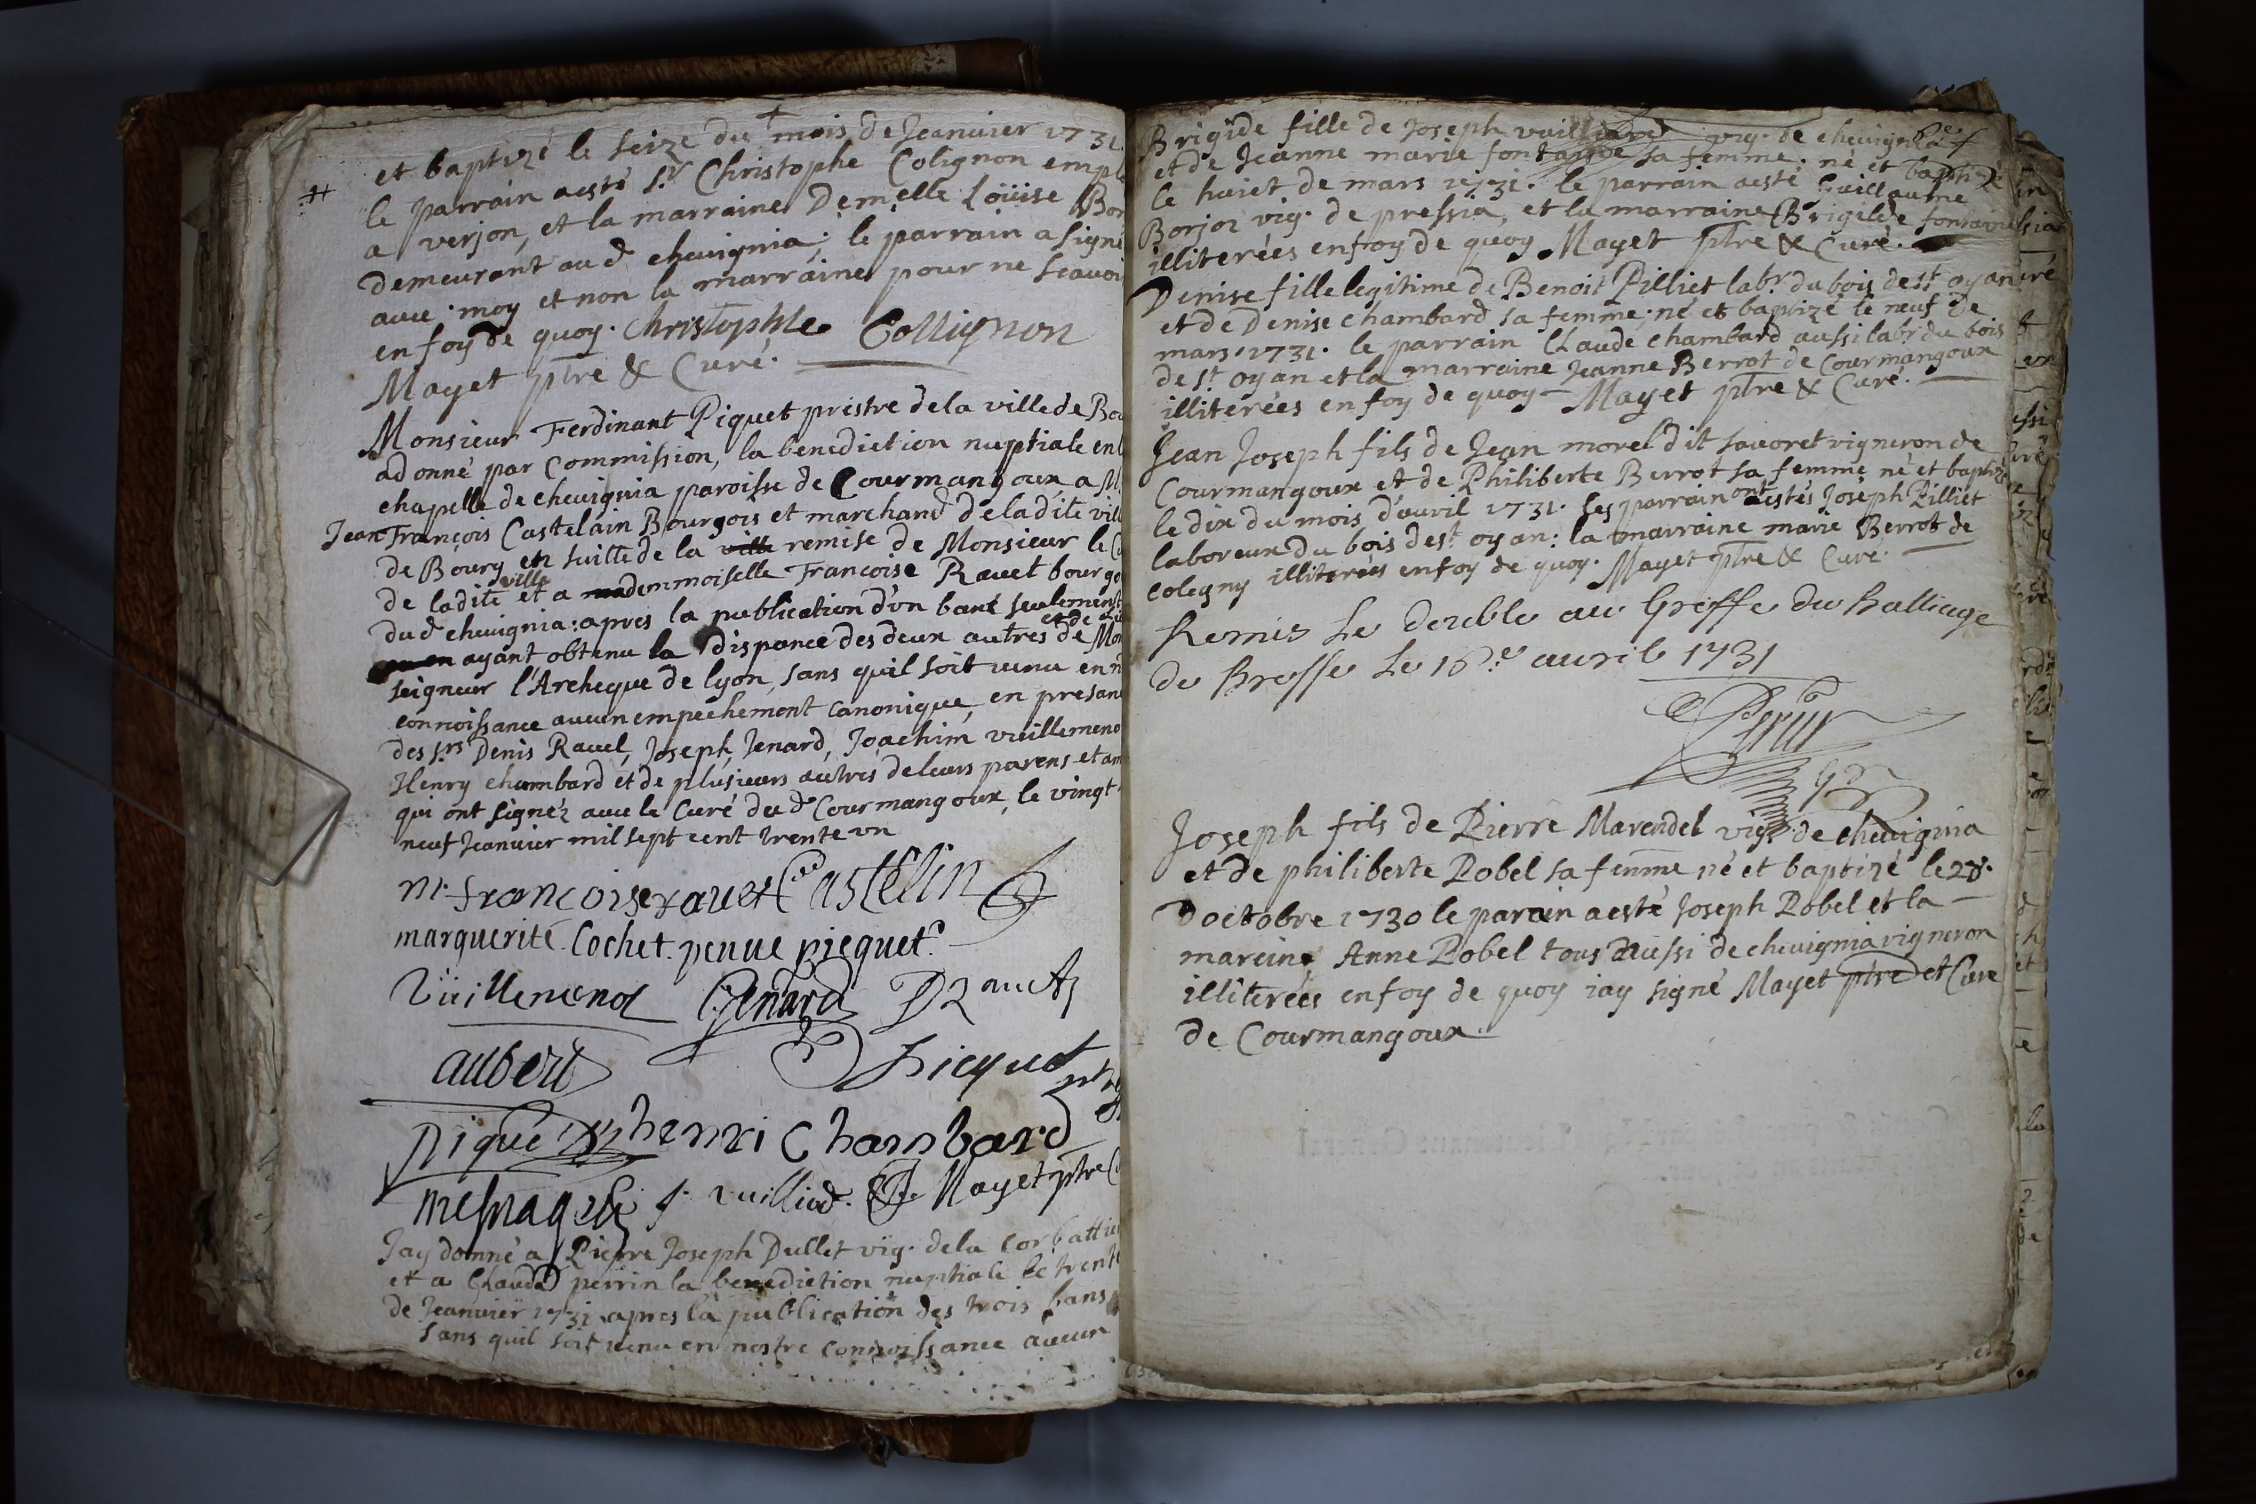 et baptizé le seize du mois de Jeanvier 1731
le parrain aesté s.r Christophe Colignon empl
a verjon, et la marraine Demelle Loüise Bon
demeurant aud chevignia; le parrain a signé
avec moy et non la marraine pour ne scavoi
en foy de quoy. Christophle Collignon
Mayet ptre & Curé.
Monsieur Ferdinant Piquet prestre de la ville de Bou
adonné par Commission, la benediction nuptiale en l
chapelle de chevignia paroisse de Courmangoux a M
Jean François Castelain Bourgois et marchand de ladite vill
de Bourg en suitte de la ville remise de Monsieur le Cu
de ladite ville et a mademmoiselle Françoise Ravet bourgo
dud chevignia: apres la publication d'vn banc seulement
ayant obtenu la dispance des deux autres de Mon
seigneur l'Archeque de lyon, sans quil soit venu en n
connoissance aucun empechement canonique, en presan
des srs Denis Ravel, Joseph Jenard, Joachim vuillemeno
Henry chambard et de plusieurs autres de leurs parens et am
qui ont signéz avec le Curé dud Courmangoux, le vingt
neuf Jeanvier mil sept cent trente vn
m. francoise ravet Castelin
marguerite Cochet. penue piequet
Vuillemenot Genard D Ravet
aubert Picquet
piquet henri Chambard
mesnage J. vuilliod. Mayet ptre C
Jay donné a Pierre Joseph Dullet vig. de la Corbattie
et a Claude perrin la benediction nuptiale le trente
de Jeanvier 1731 apres la publication des trois bans
sans quil soit venu en nostre connoissance aucun
Brigide fille de Joseph vuilliard vig. de chevignia
et de Jeanne marie fontayne sa femme. né et baptizé
le huict de mars 1731. le parrain aesté Guillaume
Borjoz vig. de pressia, et la marraine Brigilde fontayne
illiterées en foy de quoy Mayet ptre & Curé.
Denise fille legitime de Benoit Pilliet labr du bois de st oyan
et de Denise chambard sa femme; né et baptizé le neuf de
mars. 1731. le parrain Claude chambard aussi labr du bois
de st oyan et la marraine Jeanne Berrot de Courmangoux
illiterées en foy de quoy - Mayet ptre & Curé.
Jean Joseph fils de Jean morel dit savoret vigneron de
Courmangoux et de Philiberte Berrot sa femme né et baptizé
le dix du mois d'avril 1731. les parrain ont estés Joseph Pilliet
laboreux du bois de st oyan: la marraine marie Berrot de
cologny illiterées en foy de quoy. Mayet ptre & Curé.
Remis Le double au Greffe du Balliage
de Bresse Le 16.e avril 1731
Joseph fils de Pierre Marendel vig. de chevignia
et de philiberte Pobel sa femme né et baptizé le 28.
doctobre 1730 le parain aesté Joseph Pobel et la
mareine Anne Pobel tous aussi de chevignia vigneron
illiterées en foy de quoy iay signé Mayet ptre et Cure
de Courmangoux